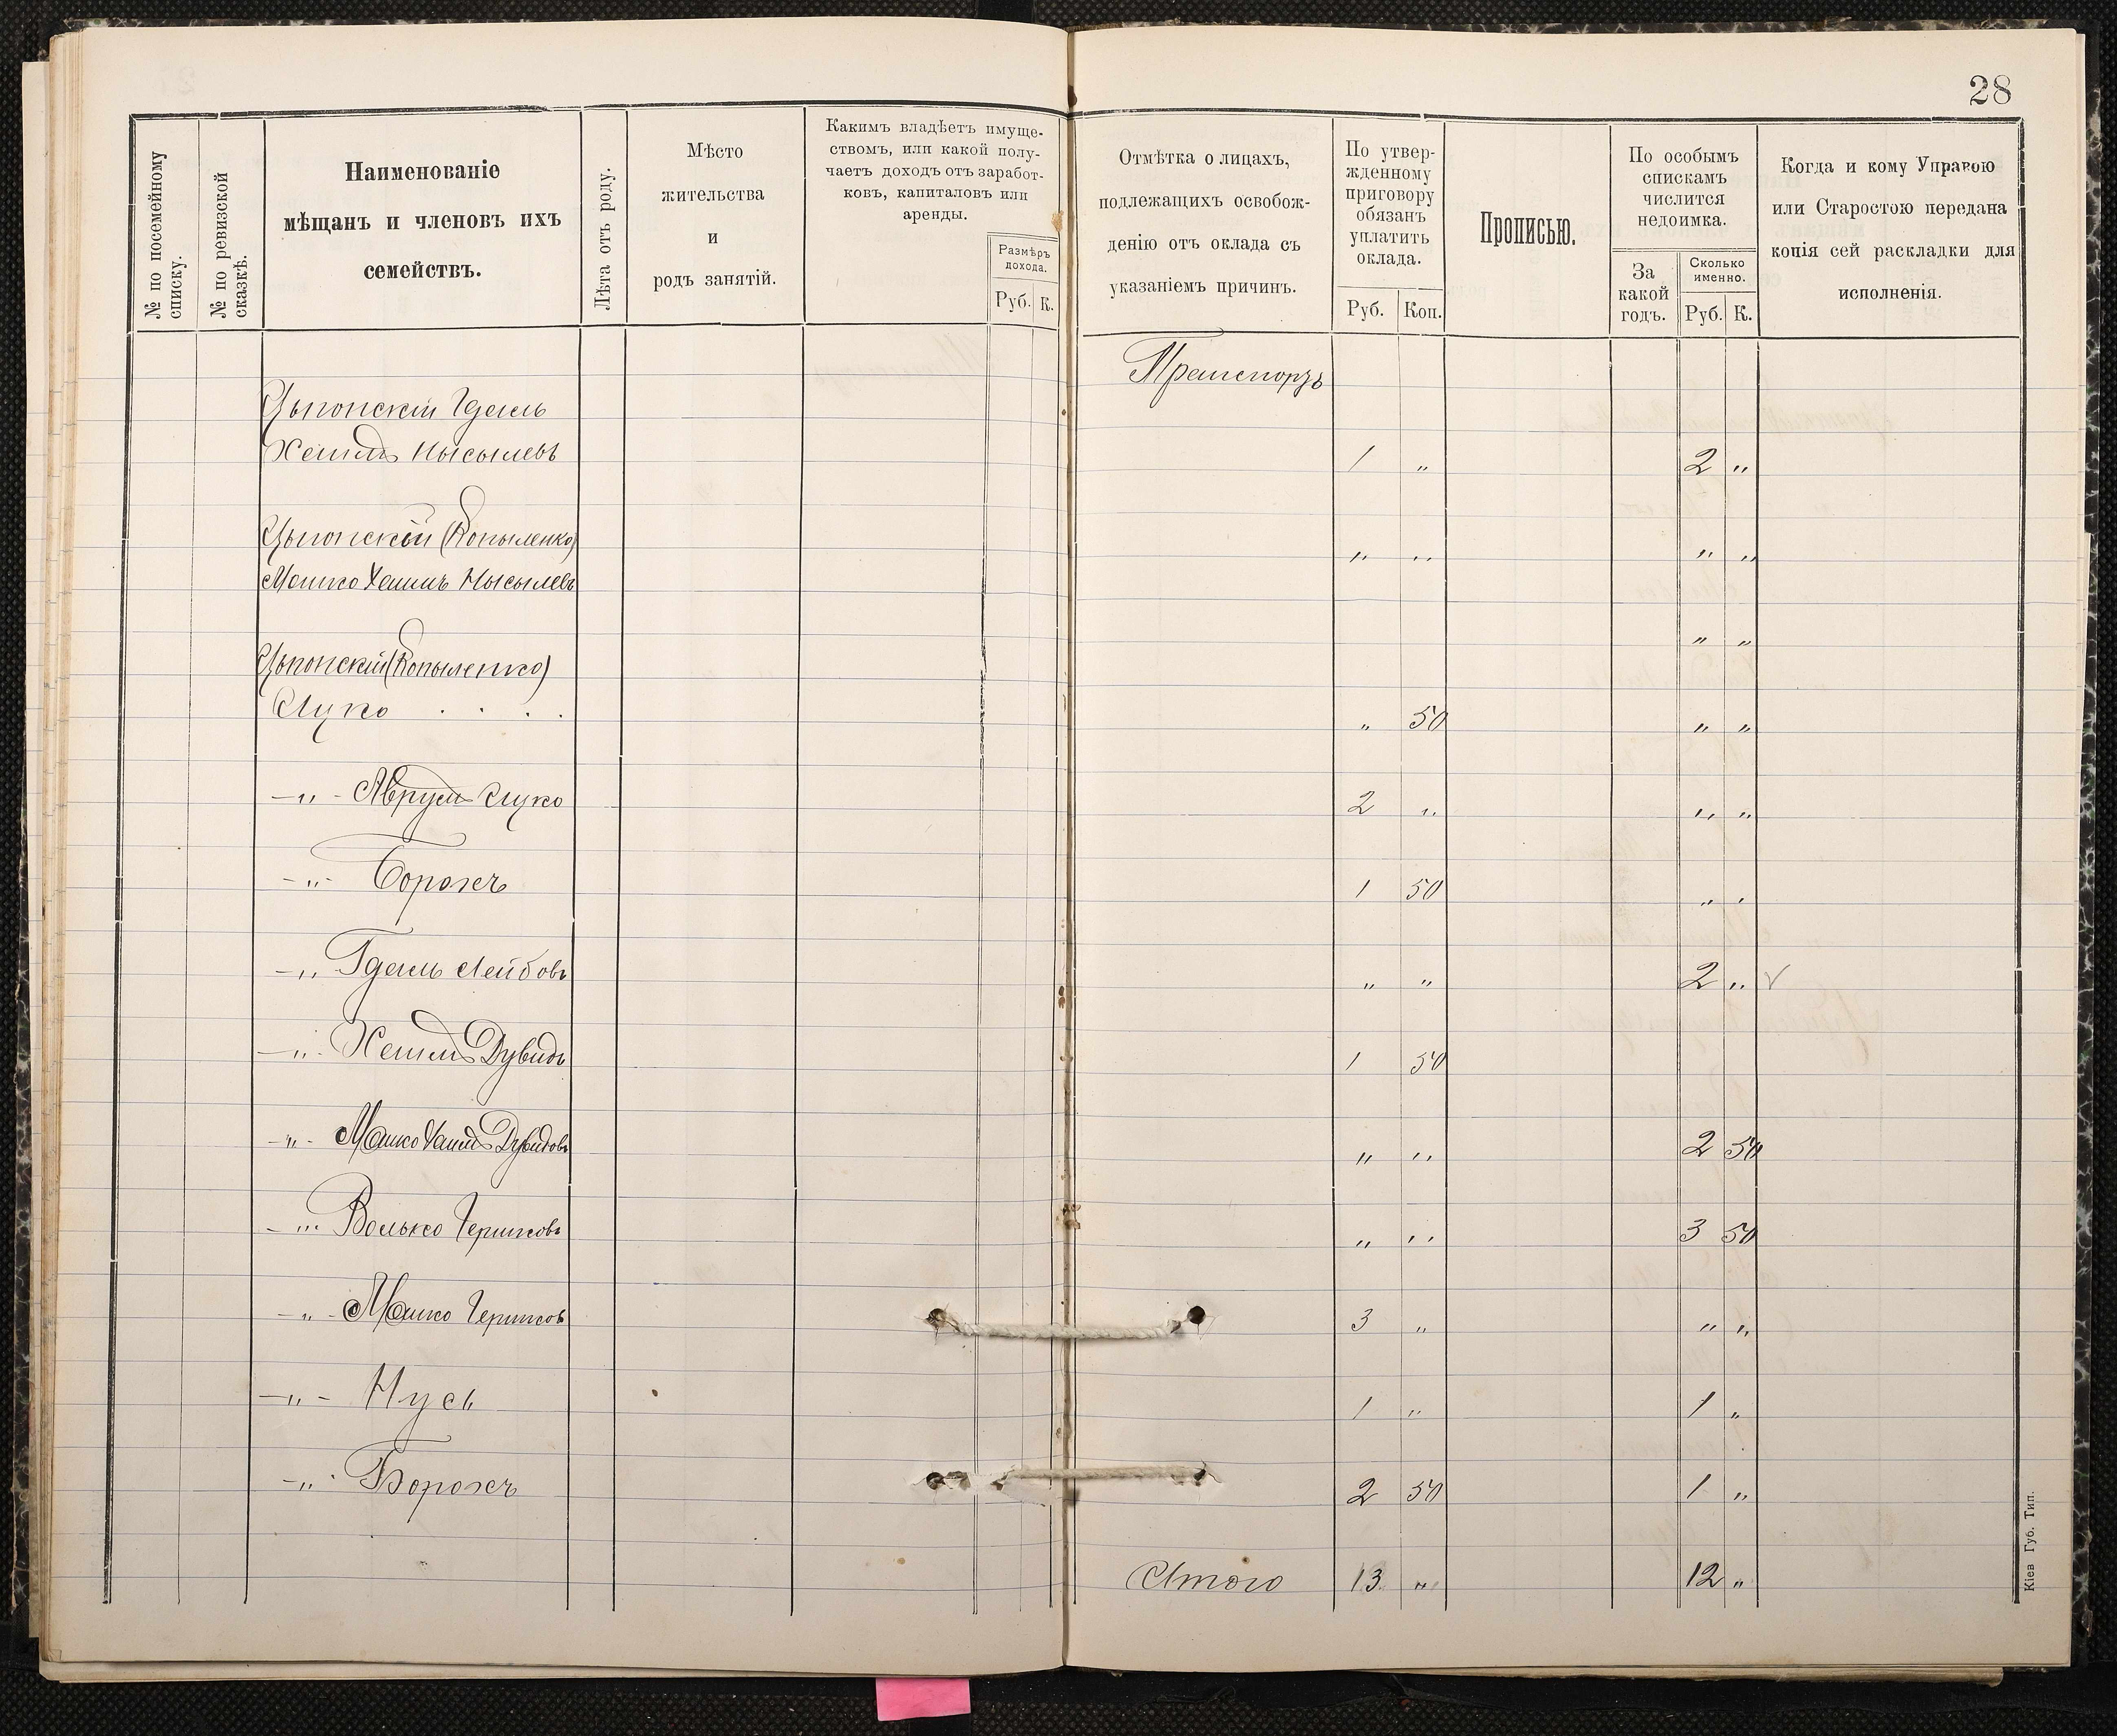 28
№ по посемейному списку.
№ по ревизской сказкѣ.
Наименованіе
мѣщанъ и членовъ ихъ
семействъ.
Лѣта отъ роду.
Мѣсто
жительства
и
родъ занятій.
Какимъ владѣетъ имуще-
ствомъ, или какой полу-
чаетъ доходъ отъ заработ-
ковъ, капиталовъ или
аренды.
Размѣръ
дохода.
Руб. К.
Отмѣтка о лицахъ,
подлежащихъ освобож-
денію отъ оклада съ
указаніемъ причинъ.
По утвер-
жденному
приговору
обязанъ
уплатить
оклада.
Руб. Коп.
Прописью.
По особымъ
спискамъ
числится
недоимка.
За
какой
годъ.
Сколько
именно.
Руб. К.
Когда и кому Управою
или Старостою передана
копія сей раскладки для
исполненія.
Транспортъ
Цыпонскій Гдаль
Хаимъ Нысылевъ 1 „ 2 „
Цыпонскій (Копыленко) „ „ „ „
Мошко Хаимъ Нысылевъ
„ „
Цыпонскій (Копыленко)
Сруко . . . . „ 50 „ „
—„— Аврумъ Сруко 2 „ „ „
—„— Борохъ 1 50 „ „
—„ Гдаль Лейбовъ „ „ 2 „ √
—„— Хаимъ Дувидъ 1 50
—„— Мошко Хаимъ Дувидовъ „ „ 2 50
—„ Волько Гершковъ „ „ 3 50
—„— Мошко Гершковъ 3 „ „ „
—„— Нусь 1 „ 1 „
—„— Борохъ 2 50 1 „
Итого 13 „ 12 „
Кіев Губ. Тип.